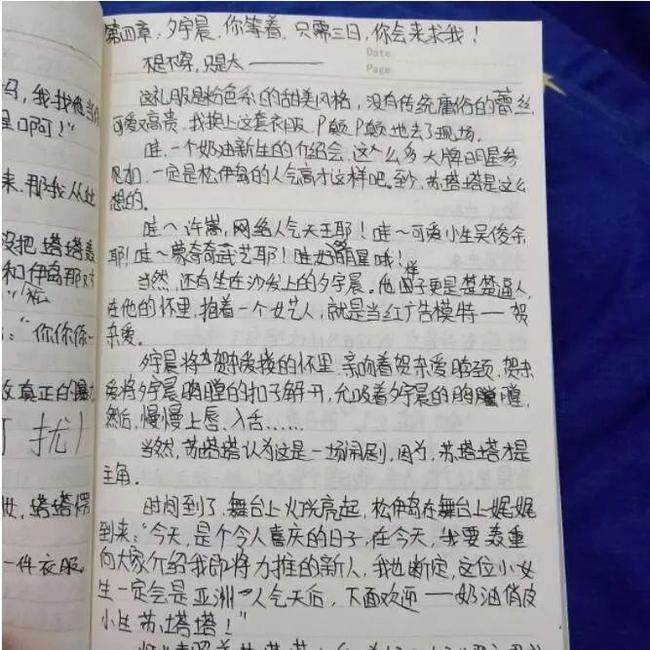 第四章:夕宇晨,你等着,只需三日,你会来求我!
Date
Page
这礼服是粉色系的甜美风格,没有传统庸俗的蕾丝,
可爱又高贵,我换上这套衣服,P颠P颠地去了现场。
哇,一个奶油新生的介绍会,这么多大牌明星参
见加,一定是松伊岛的人气高才这样吧。至少,苏塔塔是这么
想的。
哇~许嵩,网络人气天王耶!哇~可爱小生吴俊余
耶!哇~蒙奇奇武艺耶!哇好明星哦!
当然,还有坐在沙发上的夕宇晨。他样子更是楚楚逼人,
在他的怀里,抱着一个女艺人,就是当红广告模特——贺
杂爱。
夕宇晨将贺杂爱搂的怀里,亲吻着贺杂爱脖颈,贺杂
爱将夕宇晨胸膛的扣子解开,允吸着夕宇晨的胸膛,
然后,慢慢上唇、入舌……
当然,苏塔塔认为这是一场闹剧,因为,苏塔塔才是
主角。
时间到了,舞台上火光亮起,松伊岛在舞台上娓娓
到来:“今天,是个令人喜庆的日子,在今天,我要轰重
向大家介绍我即将力推的新人,我也断定,这位小女
生一定会是亚洲人气天后,下面欢迎——奶油俏皮
小生苏塔塔!”
吗,我找他当
里啊!”
来,那我从
没把塔塔轰
和伊岛那
:“你你你一
真正的
打扰
塔塔愣
一件衣服